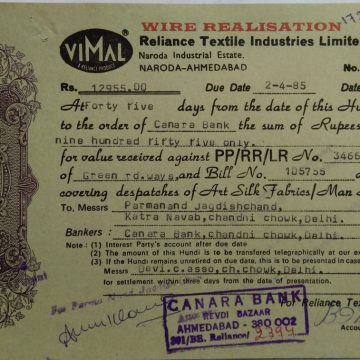 WIRE REALISATION
VIMAL
A RELIANCE PRODUCT
Reliance Textile Industries Limite
Naroda Industrial Estate,
NARODA-AHMEDABAD
No.
Rs. 12955.00 Due Date 2-4-85 Date
At Forty five days from the date of this Hu
to the order of Canara Bank the sum of Rupees
nine hundred fifty five only.
for value received against PP/RR/LR No. 3466
of Green rd.ways, and Bill No. 105755
covering despatches of Art Silk Fabrics/Man
To, Messrs Parmanand Jagdishchand,
Katra Nawab, chandni chowk, Delhi.
Bankers : Canara Bank, chandni chowk, Delhi.
Note : (1) Interest Party's account after due date
(2) The amount of this Hundi is to be transfered telegraphically at our ex
(3) If the Hundi remains unretired on due date, this to be presented in case
Messrs Devi.c.asso, ch.chowk, Delhi.
for settlement within three days from the date of presentation.
For Reliance Tex
CANARA BANK
REVDI BAZAAR
AHMEDABAD - 380 002
201/BE. Reliance/ 2399
Accou